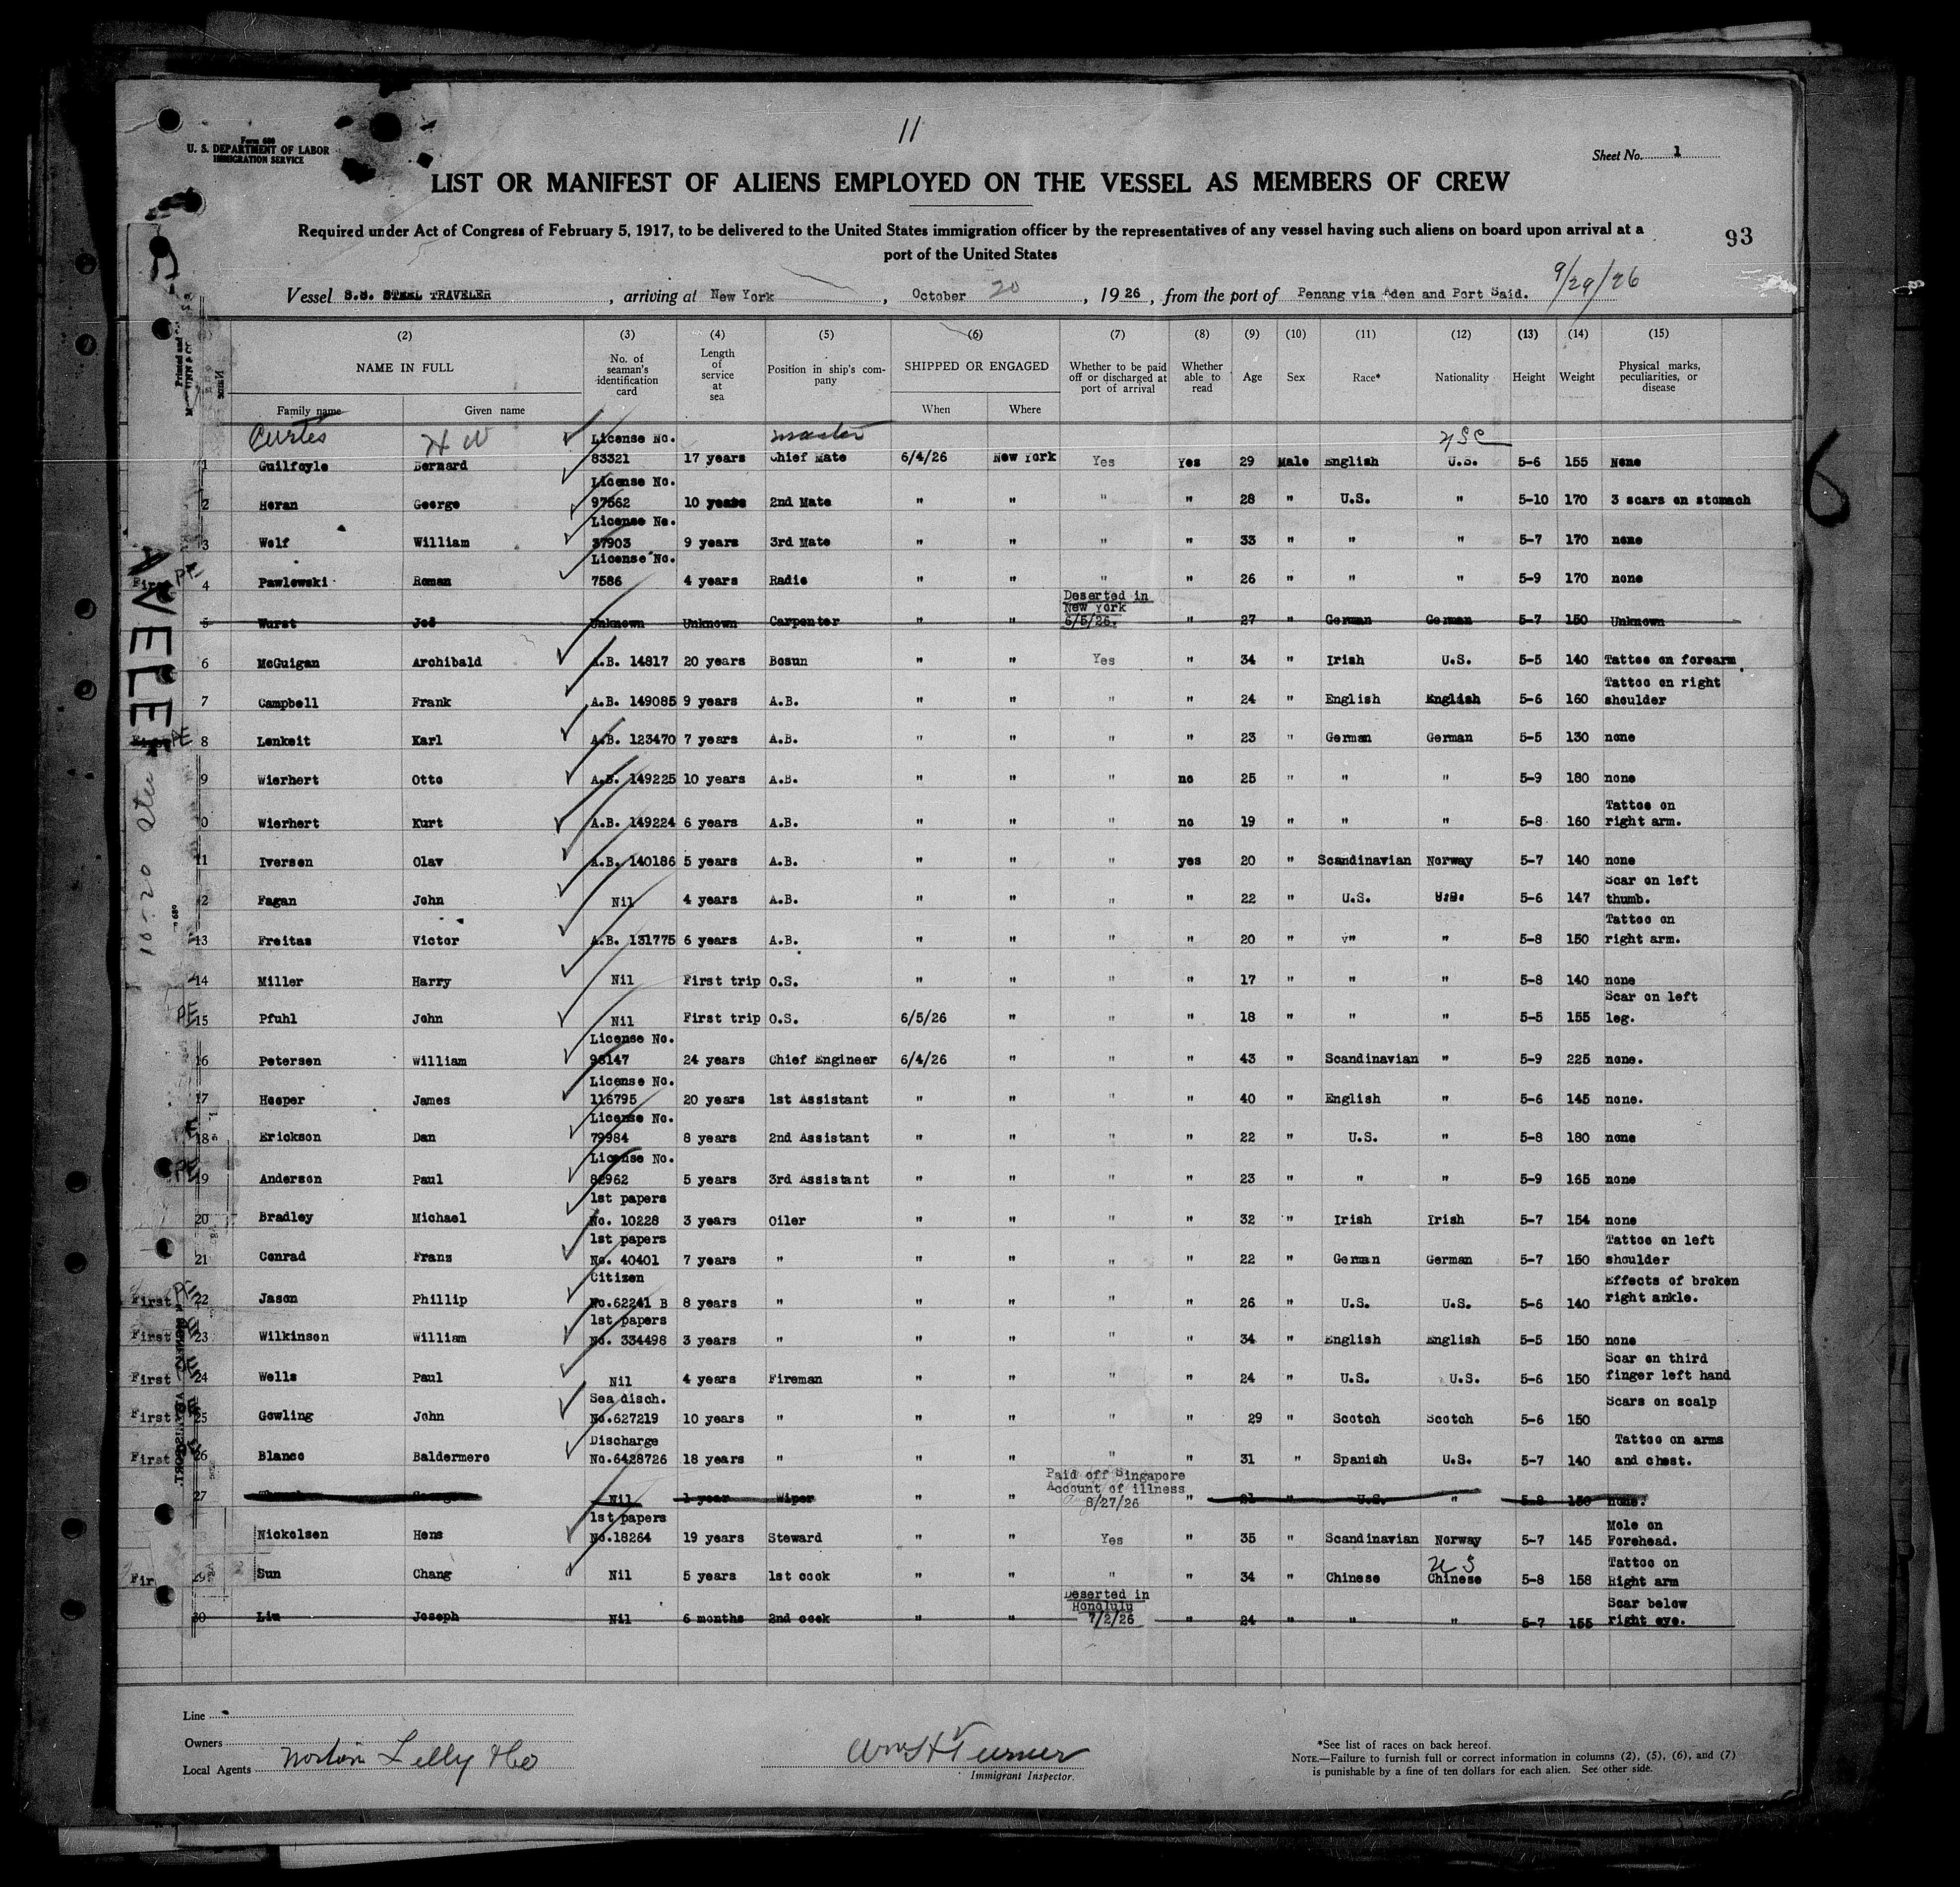 11
Form 680
U. S. DEPARTMENT OF LABOR
IMMIGRATION SERVICE
Sheet No. 1
LIST OR MANIFEST OF ALIENS EMPLOYED ON THE VESSEL AS MEMBERS OF CREW
Required under Act of Congress of February 5, 1917, to be delivered to the United States immigration officer by the representatives of any vessel having such aliens on board upon arrival at a
port of the United States
93
Vessel S.S. STEEL TRAVELER, arriving at New York, October 20, 1926, from the port of Penang via Aden and Port Said. 9/29/26
(2) (3) (4) (5) (6) (7) (8) (9) (10) (11) (12) (13) (14) (15)
NAME IN FULL No. of seaman's identification card Length of service at sea Position in ship's company SHIPPED OR ENGAGED Whether to be paid off or discharged at port of arrival Whether able to read Age Sex Race* Nationality Height Weight Physical marks, peculiarities, or disease
Family name Given name When Where
Curtes H W master USC
1 Guilfoyle Bernard License No. 83321 17 years Chief Mate 6/4/26 New York Yes Yes 29 Male English U.S. 5-6 155 None
2 Horan George License No. 97562 10 years 2nd Mate " " " " 28 " U.S. " 5-10 170 3 scars on stomach
3 Wolf William License No. 37903 9 years 3rd Mate " " " " 33 " " " 5-7 170 none
First PE 4 Pawlowski Roman License No. 7586 4 years Radio " " " " 26 " " " 5-9 170 none
5 Wurst Jos Unknown Unknown Carpenter " " Deserted in New York 6/5/26. " 27 " German German 5-7 150 Unknown
6 McGuigan Archibald A.B. 14817 20 years Bosun " " Yes " 34 " Irish U.S. 5-5 140 Tattoo on forearm.
7 Campbell Frank A.B. 149085 9 years A.B. " " " " 24 " English English 5-6 160 Tattoo on right shoulder
8 Lenkeit Karl A.B. 123470 7 years A.B. " " " " 23 " German German 5-5 130 none
9 Wierhert Otto A.B. 149225 10 years A.B. " " " no 25 " " " 5-9 180 none
0 Wierhert Kurt A.B. 149224 6 years A.B. " " " no 19 " " " 5-8 160 Tattoo on right arm.
11 Iversen Olav A.B. 140186 5 years A.B. " " " yes 20 " Scandinavian Norway 5-7 140 none
2 Fagan John Nil 4 years A.B. " " " " 22 " U.S. U.S. 5-6 147 Scar on left thumb.
13 Freitas Victor A.B. 131775 6 years A.B. " " " " 20 " " " 5-8 150 Tattoo on right arm.
14 Miller Harry Nil First trip O.S. " " " " 17 " " " 5-8 140 none
PE 15 Pfuhl John Nil First trip O.S. 6/5/26 " " " 18 " " " 5-5 155 Scar on left leg.
16 Petersen William License No. 96147 24 years Chief Engineer 6/4/26 " " " 43 " Scandinavian " 5-9 225 none.
17 Hooper James License No. 116795 20 years 1st Assistant " " " " 40 " English " 5-6 145 none.
18 Erickson Dan License No. 79984 8 years 2nd Assistant " " " " 22 " U.S. " 5-8 180 none
PE 19 Anderson Paul License No. 82962 5 years 3rd Assistant " " " " 23 " " " 5-9 165 none
20 Bradley Michael 1st papers No. 10228 3 years Oiler " " " " 32 " Irish Irish 5-7 154 none
21 Conrad Franz 1st papers No. 40401 7 years " " " " " 22 " German German 5-7 150 Tattoo on left shoulder
First PE 22 Jason Phillip Citizen No.62241 B 8 years " " " " " 26 " U.S. U.S. 5-6 140 Effects of broken right ankle.
First 23 Wilkinson William 1st papers No. 334498 3 years " " " " " 34 " English English 5-5 150 none
First 24 Wells Paul Nil 4 years Fireman " " " " 24 " U.S. U.S. 5-6 150 Scar on third finger left hand
First 25 Gowling John Sea disch. No.627219 10 years " " " " " 29 " Scotch Scotch 5-6 150 Scars on scalp
First 26 Blanco Baldermero Discharge No.6428726 18 years " " " " " 31 " Spanish U.S. 5-7 140 Tattoo on arms and chest.
27 Nil 1 year Wiper " " Paid off Singapore Account of illness 8/27/26 " 21 " U.S. " 5-8 none.
Nickolsen Hens 1st papers No.18264 19 years Steward " " Yes " 35 " Scandinavian Norway 5-7 145 Mole on Forehead.
Fir 29 Sun Chang Nil 5 years 1st cook " " " " 34 " Chinese Chinese US 5-8 158 Tattoo on Right arm
30 Liu Joseph Nil 6 months 2nd cook " " Deserted in Honolulu 7/2/26 " 24 " " " 5-7 155 Scar below right eye.
Line
Owners
Local Agents Norton Lilly & Co
Wm H Turner
Immigrant Inspector.
*See list of races on back hereof.
NOTE.—Failure to furnish full or correct information in columns (2), (5), (6), and (7)
is punishable by a fine of ten dollars for each alien. See other side.
AVELER
10-20
6